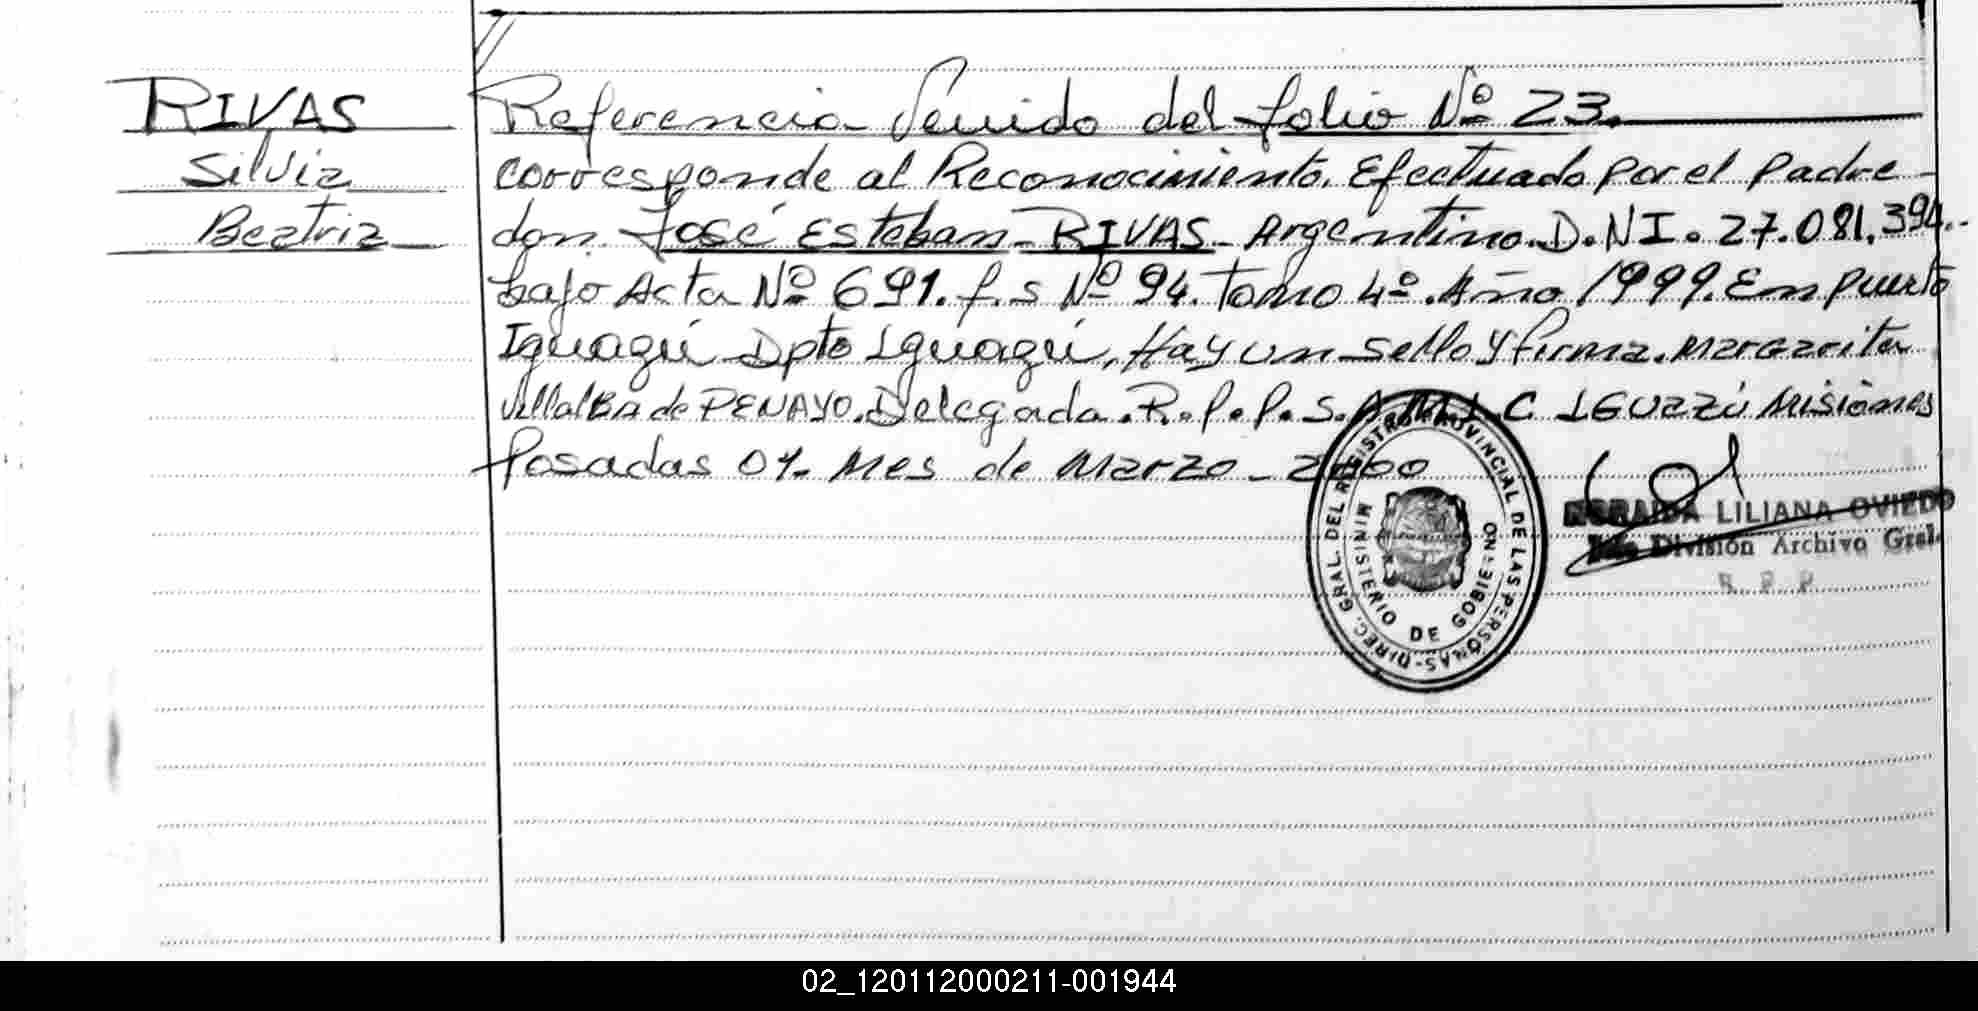 RIVAS
Silvia
Beatriz
Referencia Venido del folio Nº 23.
corresponde al Reconocimiento. Efectuado por el padre
don. José Esteban - RIVAS - Argentino. D.N.I. 27.081.394.-
bajo Acta Nº 691. f.s Nº 94. Tomo 4º. Año 1999. En Puerto
Iguazú Dpto Iguazú. Hay un sello y firma. Margarita
Villalba de PENAYO. Delegada. R.P.P. S.A.M.L.C IGuazú Misiones
Posadas 01. Mes de Marzo - 2000
DIREC. GRAL. DEL REGISTRO PROVINCIAL DE LAS PERSONAS -
MINISTERIO DE GOBIERNO
LILIANA OVIEDO
División Archivo Gral.
R. P. P.
02_120112000211-001944